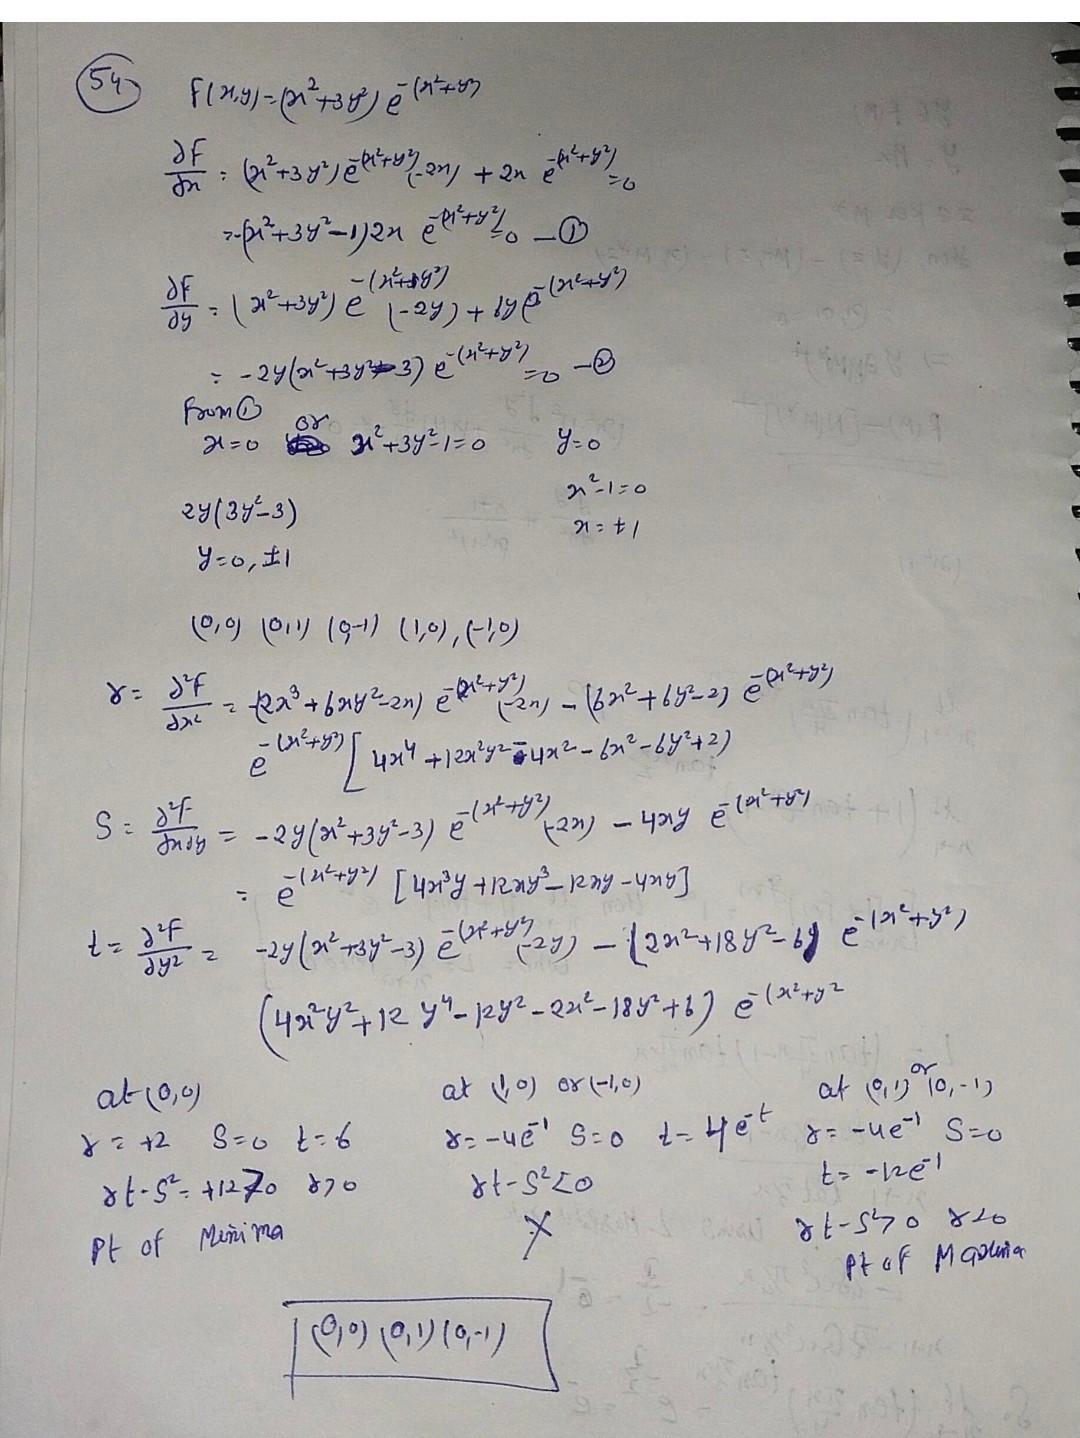 54
F(x,y)=(x²+3y²) e^-(x²+y²)
∂F/∂x = (x²+3y²) e^-(x²+y²) (-2x) + 2x e^-(x²+y²) =0
=-(x²+3y²-1)2x e^-(x²+y²) =0 —①
∂F/∂y = (x²+3y²) e^-(x²+y²) (-2y) + 6y e^-(x²+y²)
= -2y(x²+3y²-3) e^-(x²+y²) =0 —②
from ①
x=0 or x²+3y²-1=0 y=0
x²-1=0
2y(3y²-3)
x=±1
y=0, ±1
(0,0) (0,1) (0,-1) (1,0), (-1,0)
r= ∂²F/∂x² = -(2x³+6xy²-2x) e^-(x²+y²) (-2x) - (6x²+6y²-2) e^-(x²+y²)
e^-(x²+y²) [4x⁴+12x²y²-4x²-6x²-6y²+2)
S= ∂²F/∂x∂y = -2y(x²+3y²-3) e^-(x²+y²) (-2x) - 4xy e^-(x²+y²)
= e^-(x²+y²) [4x³y+12xy³-12xy-4xy]
t= ∂²F/∂y² = -2y(x²+3y²-3) e^-(x²+y²) (-2y) - (2x²+18y²-6) e^-(x²+y²)
(4x²y²+12y⁴-12y²-2x²-18y²+6) e^-(x²+y²
at (0,0) at (1,0) or (-1,0) at (0,1) or (0,-1)
r = +2 S=0 t=6 r=-4e⁻¹ S=0 t=4e^-t r=-4e⁻¹ S=0
t=-12e⁻¹
rt-S²=+12>0 r>0 rt-S²<0
rt-S²>0 r<0
Pt of Minima X
Pt of Maxima
(0,0) (0,1) (0,-1)